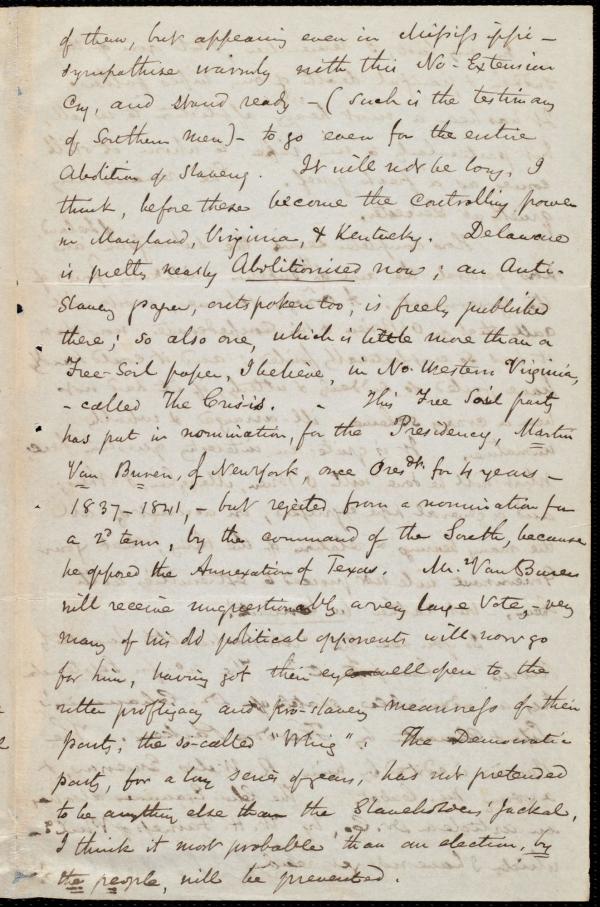 of them, but appearing even in Mississippi –
sympathise warmly with this No-Extension
Cry, and stand ready – (such is the testimony
of Southern men) – to go even for the entire
Abolition of Slavery. It will not be long, I
think, before these become the controlling power
in Maryland, Virginia, & Kentucky. Delaware
is pretty nearly Abolitionised now; an Anti-
Slavery paper, outspoken too, is freely published
there; so also one, which is little more than a
Free-Soil paper, I believe, in No. Western Virginia,
– called The Crisis. – This Free Soil party
has put in nomination, for the Presidency, Martin
Van Buren, of New York, once Presdt. for 4 years –
1837–1841, – but rejected from a nomination for
a 2d term, by the command of the South, because
he opposed the Annexation of Texas. Mr. Van Buren
will receive unquestionably a very large vote, – very
many of his old political opponents will now go
for him, having got their eyes well open to the
utter profligacy and pro-slavery meanness of their
party, the so-called "Whig". The Democratic
party, for a long series of years, has not pretended
to be anything else than the Slaveholders' Jackal.
I think it most probable than an election, by
the people, will be prevented.